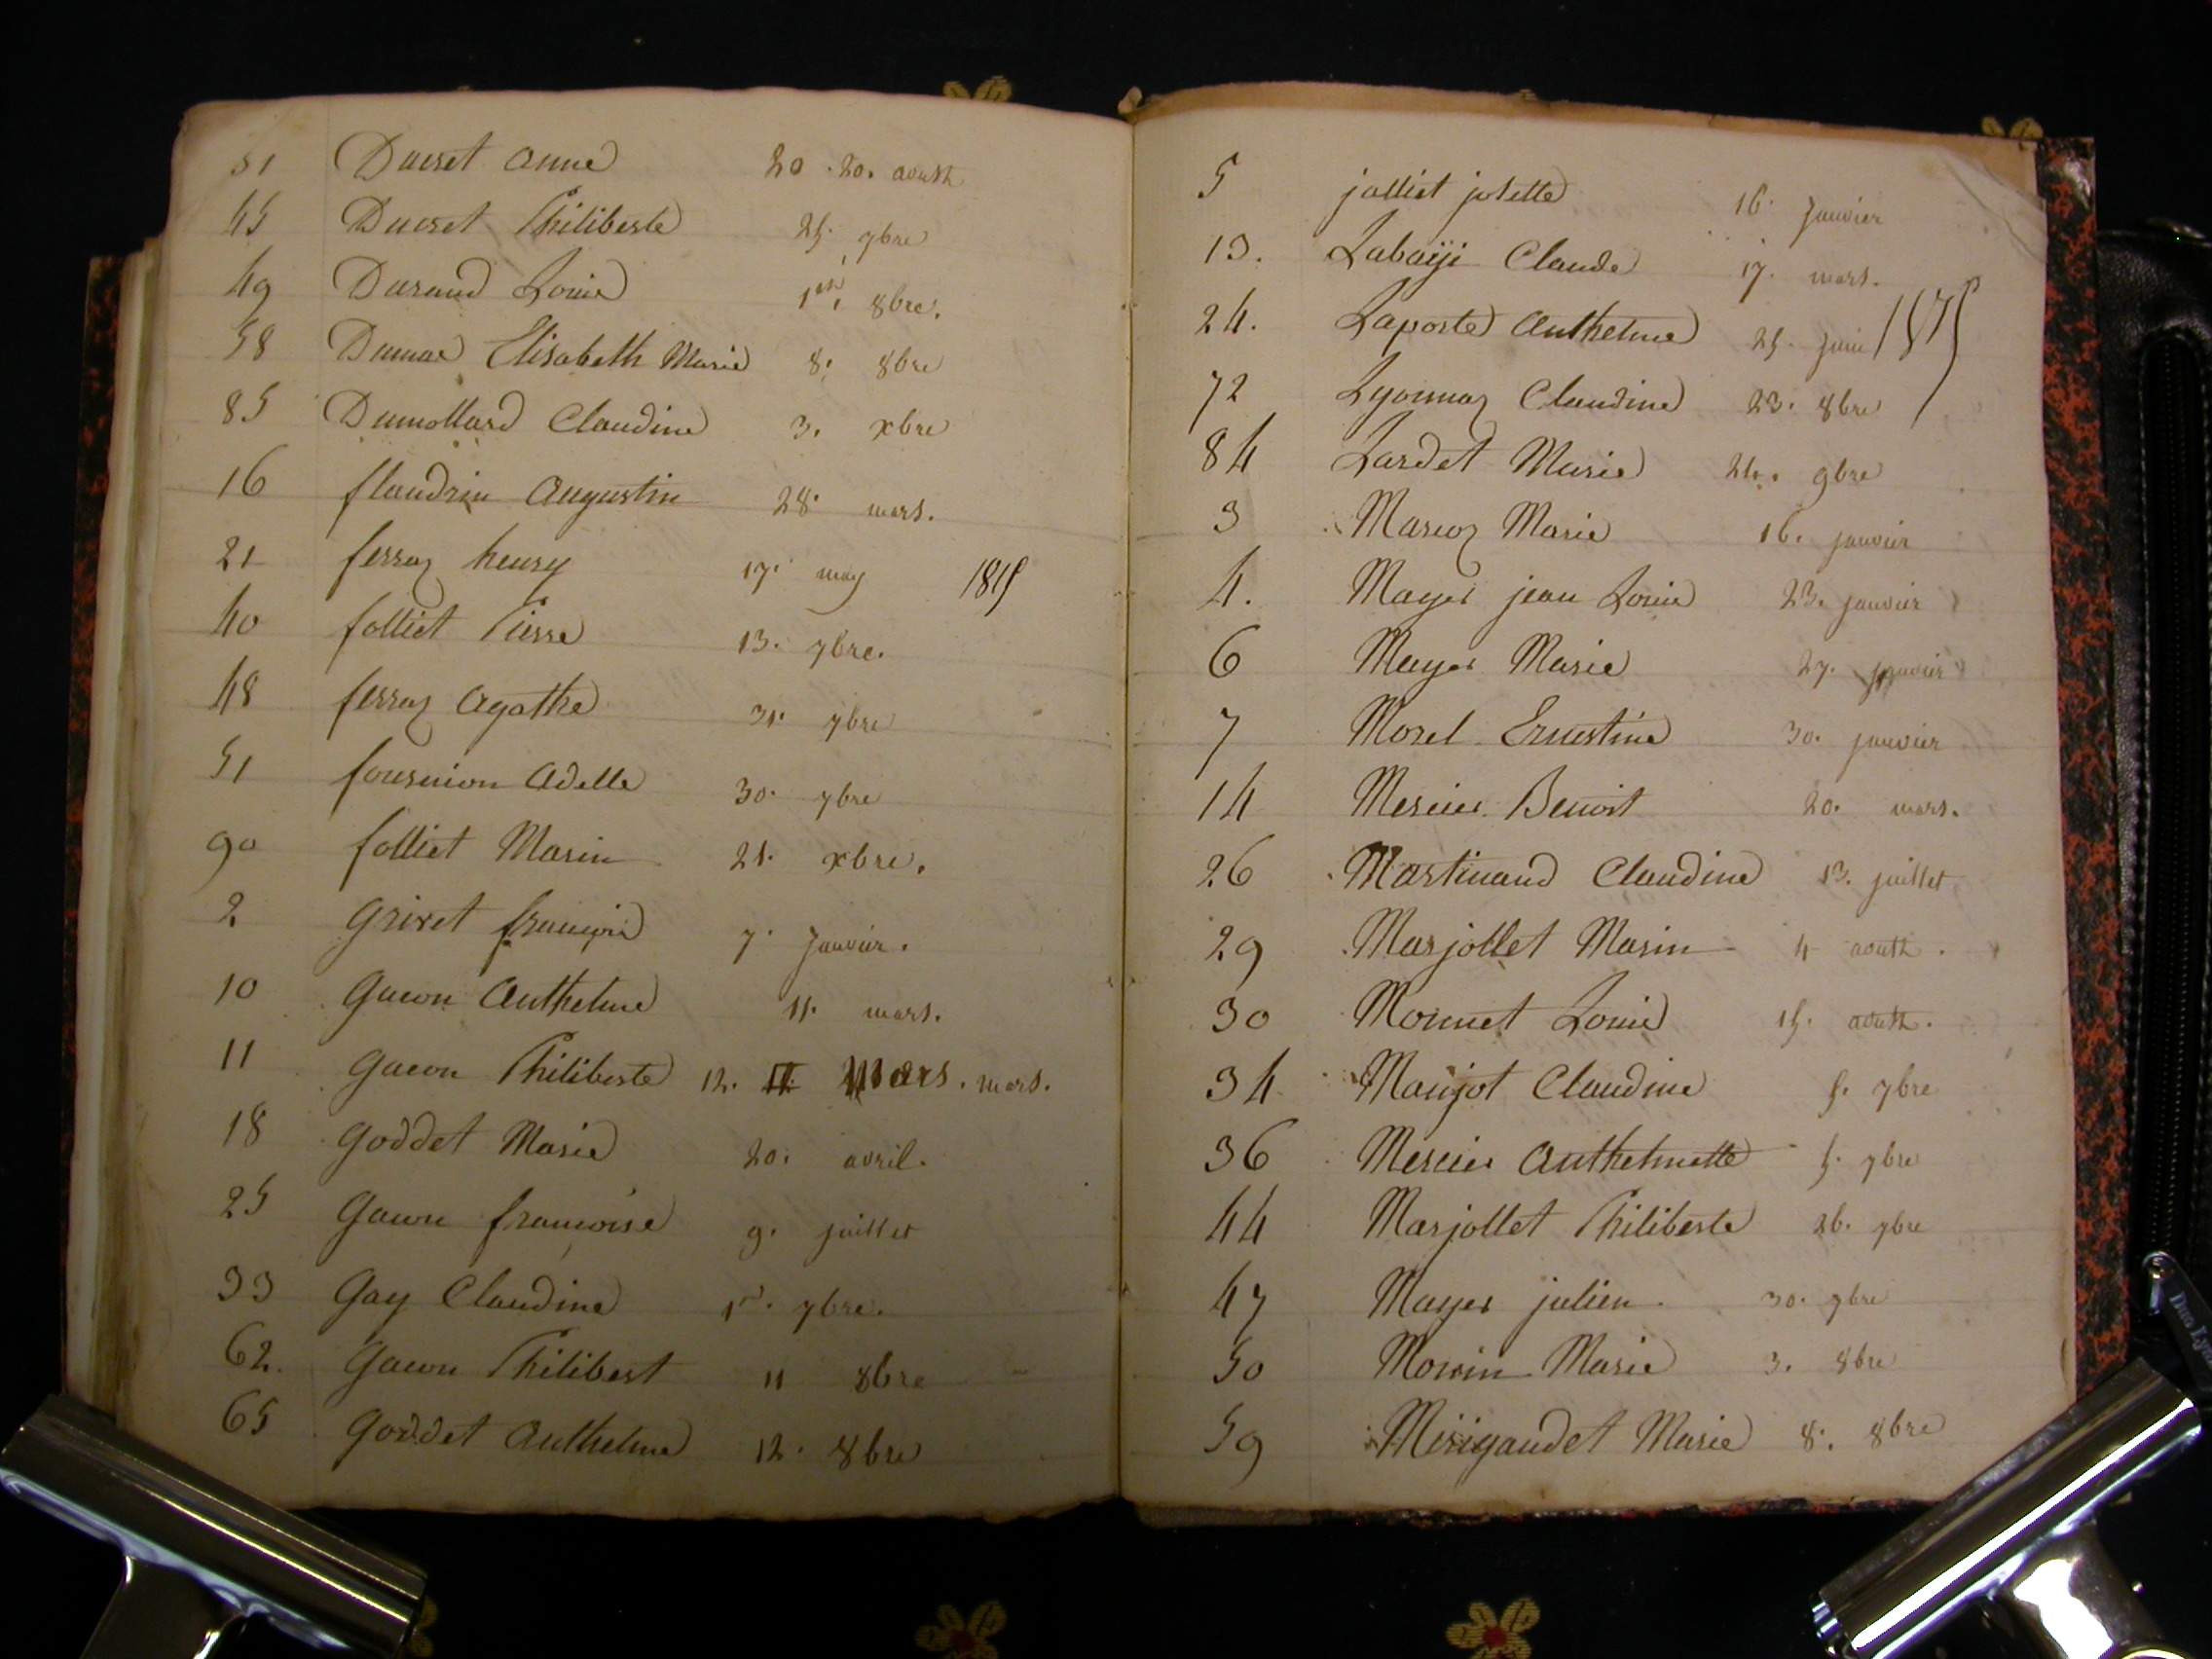 31 Ducret Anne 20. 20. aoust
45 Ducret Philiberte 25. 7bre
49 Durand Louis 1er. 8bre.
58 Dumas Elisabeth Marie 8. 8bre
85 Dumollard Claudine 3. xbre
16 flandrin Augustin 28. mars.
21 ferraz henry 17. may 1815
40 folliet Pierre 13. 7bre.
48 ferraz Agathe 31. 7bre
51 fournion Adelle 30. 7bre
90 folliet Marin 21. xbre.
2 Grivet françois 7. Janvier.
10 Gacon Anthelme 11. mars.
11 Gacon Philiberte 12. mars. mars.
18 Goddet Marie 20. avril.
25 Gacon francoise 9. juillet
33 Gay Claudine 1er. 7bre.
62. Gacon Philibert 11 8bre
65 Goddet Anthelme 12. 8bre
5 jolliet josette 16. Janvier
13. Labaiji Claude 17. mars.
24. Laporte Anthelme 25. Juin
72 Lyonnaz Claudine 23. 8bre
84 Lardet Marie 24. 9bre
3 Marcoz Marie 16. janvier
4. Mayer jean Louis 23. janvier
6 Mayer Marie 27. janvier
7 Morel Ernestine 30. janvier
14 Mercier Benoit 20. mars.
26 Martinand Claudine 13. juillet
29 Marjollet Marin 4 aoust.
30 Monnet Louis 15. aoust.
34 Maujot Claudine 5. 7bre
36 Mercier Anthelmette 5. 7bre
44 Marjollet Philiberte 26. 7bre
47 Mayer julien. 30. 7bre
50 Morin Marie 3. 8bre
59 Mirigaudet Marie 8. 8bre